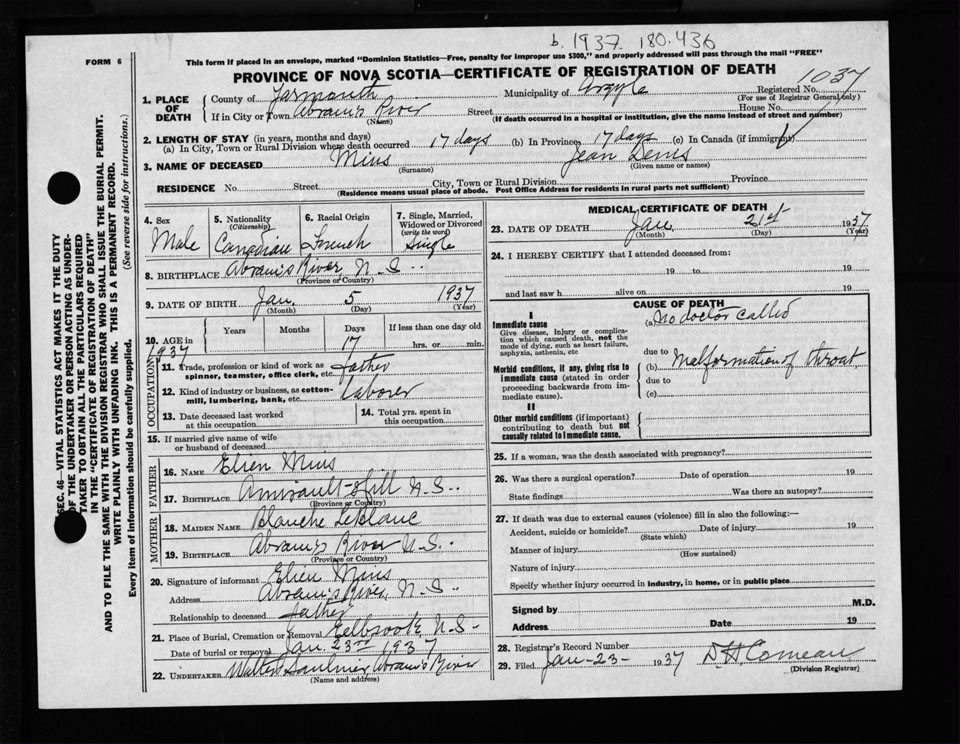 b. 1937. 180.436
FORM 6
This form if placed in an envelope, marked "Dominion Statistics—Free, penalty for improper use $300," and properly addressed will pass through the mail "FREE"
PROVINCE OF NOVA SCOTIA—CERTIFICATE OF REGISTRATION OF DEATH
1. PLACE OF DEATH County of Yarmouth Municipality of Argyle Registered No. 1037
(For use of Registrar General only)
If in City or Town Abram's River Street House No.
(Name) (If death occurred in a hospital or institution, give the name instead of street and number)
2. LENGTH OF STAY (in years, months and days)
(a) In City, Town or Rural Division where death occurred 17 days (b) In Province 17 days (c) In Canada (if immigrant)
3. NAME OF DECEASED Mius Jean Denis
(Surname) (Given name or names)
RESIDENCE No. Street City, Town or Rural Division Province
(Residence means usual place of abode. Post Office Address for residents in rural parts not sufficient)
4. Sex Male
5. Nationality (Citizenship) Canadian
6. Racial Origin French
7. Single, Married, Widowed or Divorced (write the word) Single
8. BIRTHPLACE Abram's River, N.S.
(Province or Country)
9. DATE OF BIRTH Jan. 5 1937
(Month) (Day) (Year)
10. AGE in Years Months Days 17 If less than one day old hrs. or min.
1937
OCCUPATION
11. Trade, profession or kind of work as spinner, teamster, office clerk, etc. father
12. Kind of industry or business, as cotton-mill, lumbering, bank, etc. laborer
13. Date deceased last worked at this occupation
14. Total yrs. spent in this occupation
15. If married give name of wife or husband of deceased
FATHER
16. NAME Elien Mius
17. BIRTHPLACE Amirault-Hill N.S.
(Province or Country)
MOTHER
18. MAIDEN NAME Blanche LeBlanc
19. BIRTHPLACE Abram's River N.S.
(Province or Country)
20. Signature of informant Elien Mius
Address Abram's River, N.S.
Relationship to deceased father
21. Place of Burial, Cremation or Removal Eelbrook, N.S.
Date of burial or removal Jan. 23rd 1937
22. UNDERTAKER Walter Saulnier, Abram's River
(Name and address)
MEDICAL CERTIFICATE OF DEATH
23. DATE OF DEATH Jan. 21st 1937
(Month) (Day) (Year)
24. I HEREBY CERTIFY that I attended deceased from:
19 to 19
and last saw h alive on 19
CAUSE OF DEATH
I
Immediate cause (a) No doctor called
Give disease, injury or complication which caused death, not the mode of dying, such as heart failure, asphyxia, asthenia, etc
due to
Morbid conditions, if any, giving rise to immediate cause (stated in order proceeding backwards from immediate cause). (b) Malformation of throat.
due to
(c)
II
Other morbid conditions (if important) contributing to death but not causally related to immediate cause.
25. If a woman, was the death associated with pregnancy?
26. Was there a surgical operation? Date of operation 19
State findings Was there an autopsy?
27. If death was due to external causes (violence) fill in also the following:—
Accident, suicide or homicide? Date of injury 19
(State which)
Manner of injury
(How sustained)
Nature of injury
Specify whether injury occurred in industry, in home, or in public place
Signed by M.D.
Address Date 19
28. Registrar's Record Number
29. Filed Jan-23- 1937 D.H. Comeau
(Division Registrar)
SEC. 46—VITAL STATISTICS ACT MAKES IT THE DUTY
OF THE UNDERTAKER OR PERSON ACTING AS UNDER-
TAKER TO OBTAIN ALL THE PARTICULARS REQUIRED
IN THE "CERTIFICATE OF REGISTRATION OF DEATH"
AND TO FILE THE SAME WITH THE DIVISION REGISTRAR WHO SHALL ISSUE THE BURIAL PERMIT.
WRITE PLAINLY WITH UNFADING INK. THIS IS A PERMANENT RECORD.
Every item of information should be carefully supplied. (See reverse side for instructions.)